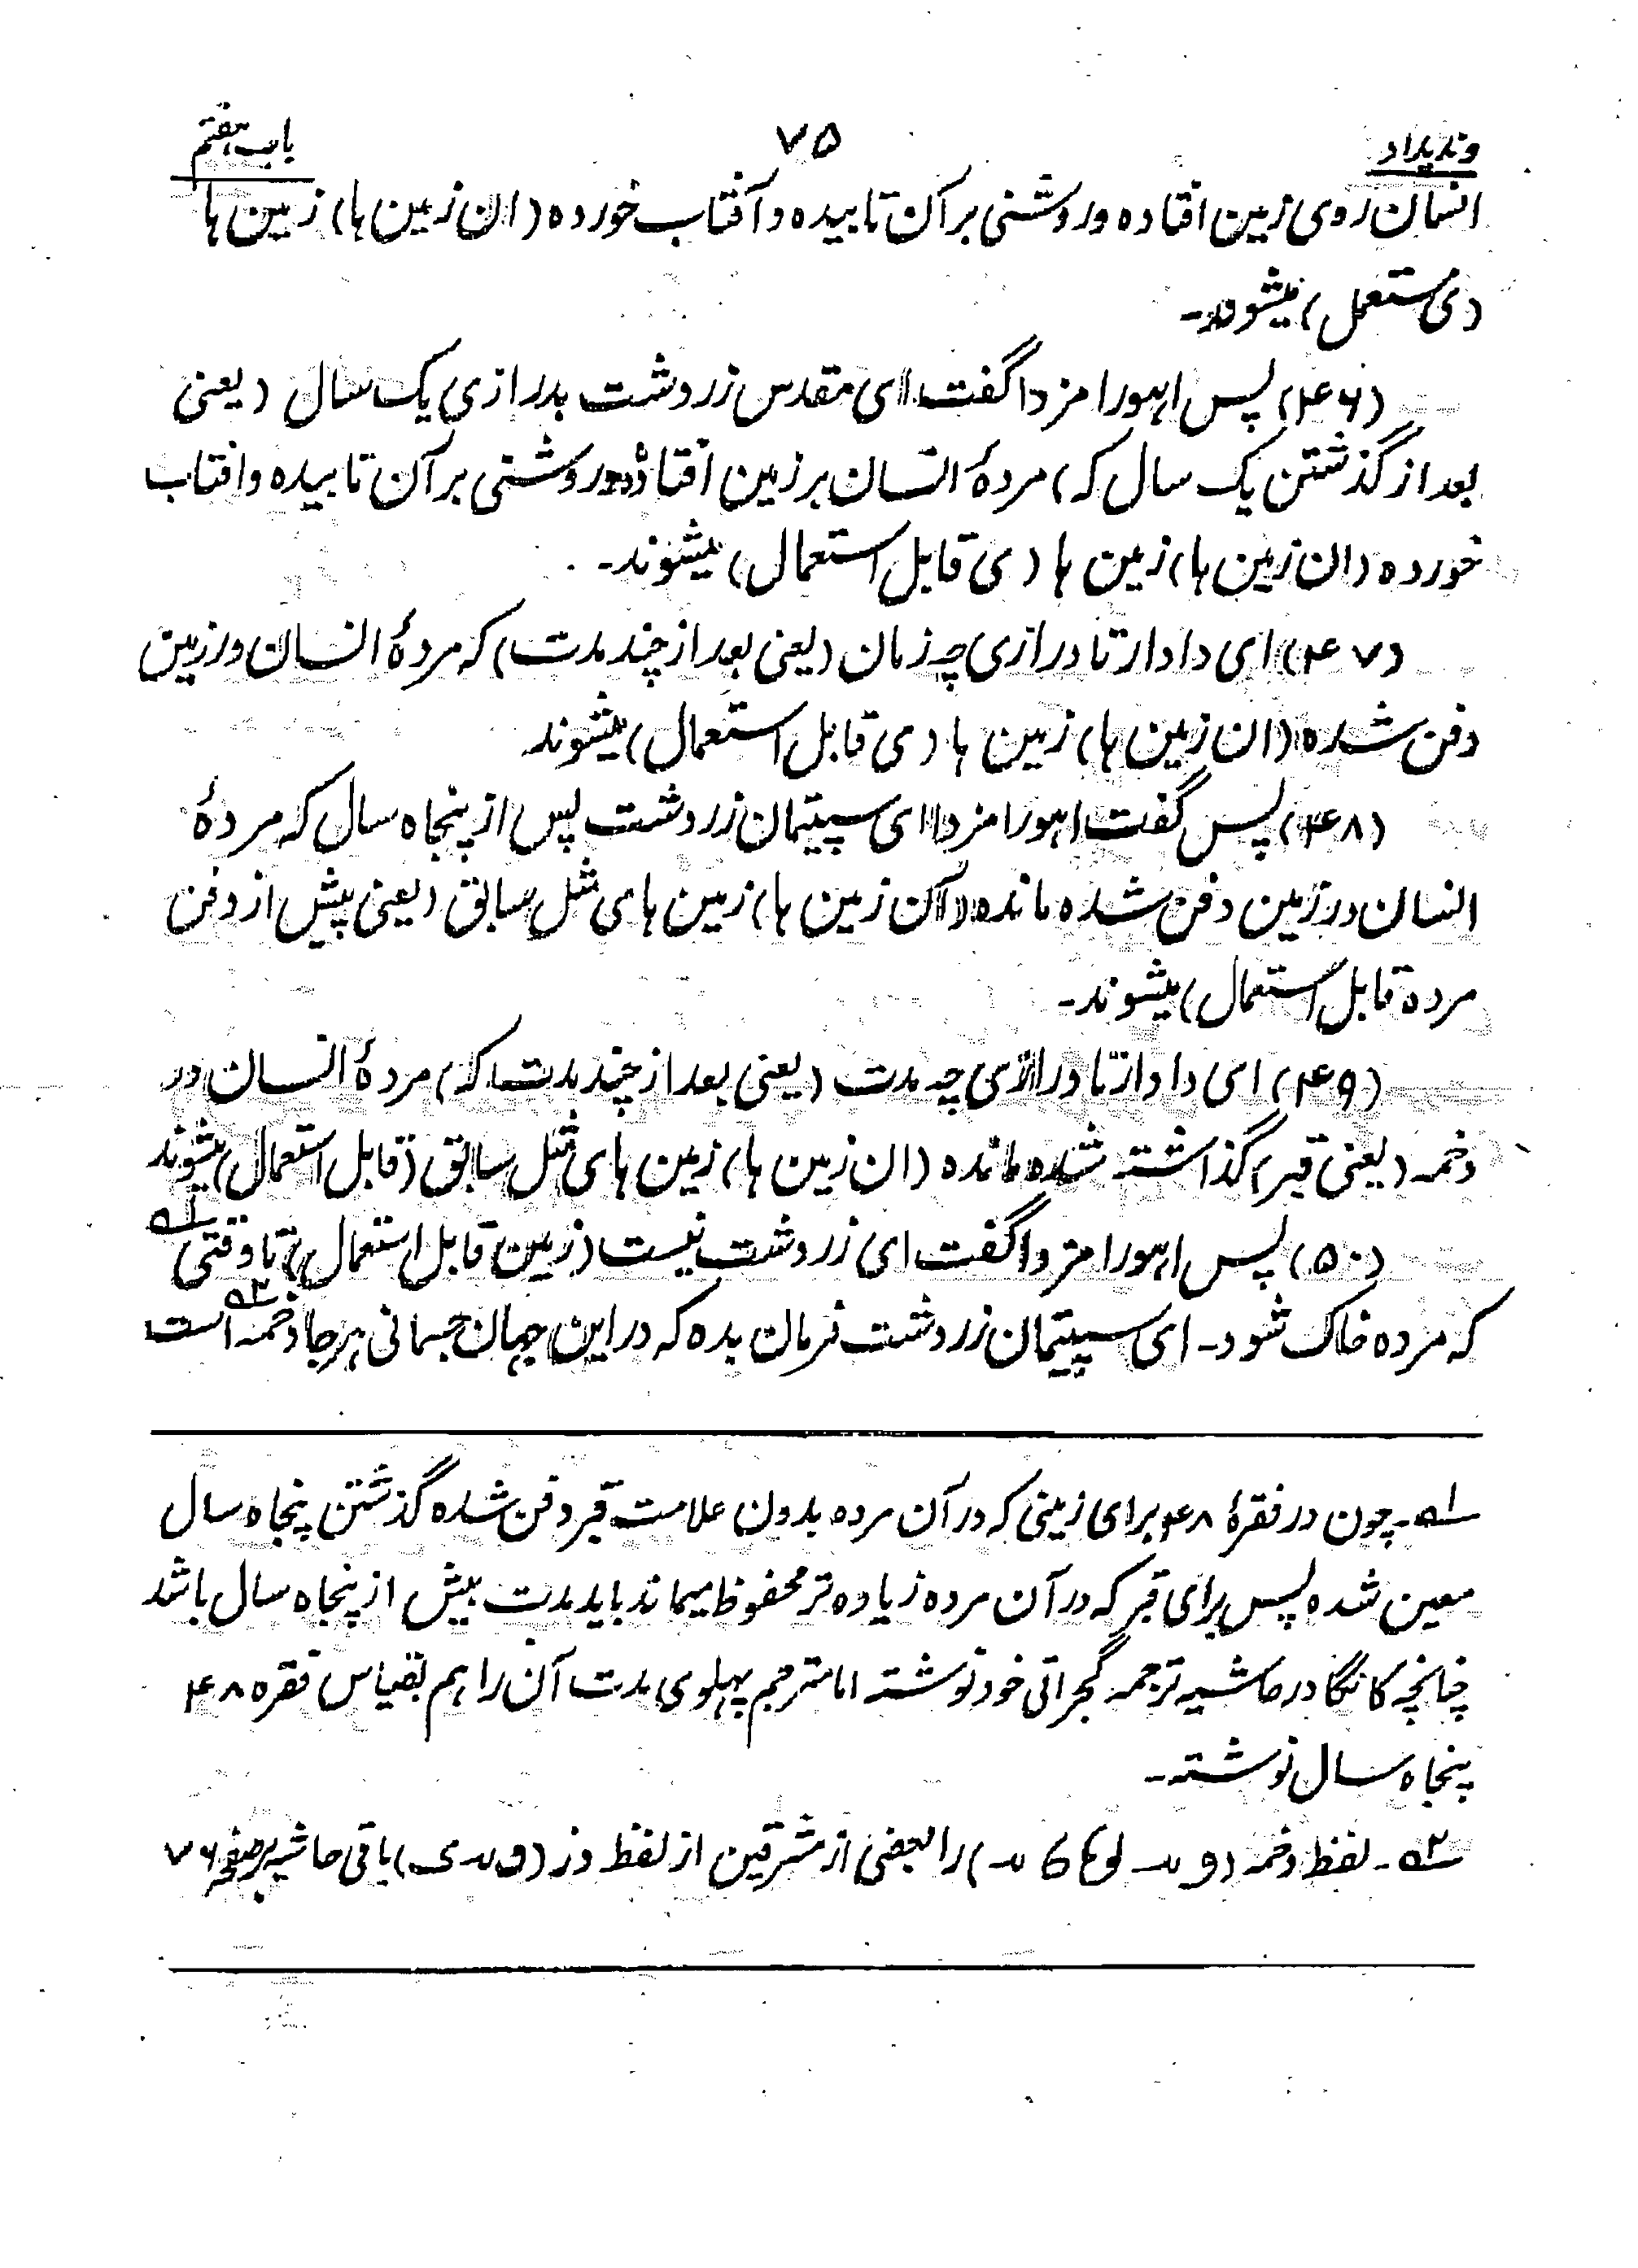 وندیداد ۷۵ باب هفتم
انسان روی زمین افتاده و روشنی بر آن تابیده و آفتاب خورده (ان زمین ها) زمین ها
(ی مستعمل) میشوند-
(۴۶) پس اهورا مزدا گفت ای مقدس زردشت بدرازی یک سال (یعنی
بعد از گذشتن یک سال که) مردهٔ انسان بر زمین افتاده و روشنی بر آن تابیده و افتاب
خورده (ان زمین ها) زمین ها (ی قابل استعمال) میشوند-
(۴۷) ای دادار تا درازی چه زمان (یعنی بعد از چند مدت) که مردهٔ انسان در زمین
دفن شده (ان زمین ها) زمین ها (ی قابل استعمال) میشوند
(۴۸) پس گفت اهورا مزدا ای سپیتمان زردشت پس از پنجاه سال که مردهٔ
انسان در زمین دفن شده مانده (آن زمین ها) زمین های مثل سابق (یعنی پیش از دفن
مرده قابل استعمال) میشوند-
(۴۹) ای دادار تا درازی چه مدت (یعنی بعد از چند مدت که) مردهٔ انسان در
دخمه (یعنی قبر) گذاشته شده مانده (ان زمین ها) زمین های مثل سابق (قابل استعمال) میشوند
(۵۰) پس اهورا مزدا گفت ای زردشت نیست (زمین قابل استعمال) تا وقتی ۱ه
که مرده خاک شود- ای سپیتمان زردشت فرمان بده که در این جهان جسمانی هر جا دخمه ۲ه است
۱ه- چون در فقرهٔ ۴۸ برای زمینی که در آن مرده بدون علامت قبر دفن شده گذشتن پنجاه سال
معین شده پس برای قبر که در آن مرده زیاده تر محفوظ میماند باید مدت بیش از پنجاه سال باشد
چنانچه کانگا در حاشیه ترجمه گجراتی خود نوشته اما مترجم پهلوی مدت آن را هم بقیاس فقره ۴۸
پنجاه سال نوشته-
۲ه- لفظ دخمه را بعضی از مشرقین از لفظ دز باقی حاشیه بر صفحه ۷۶